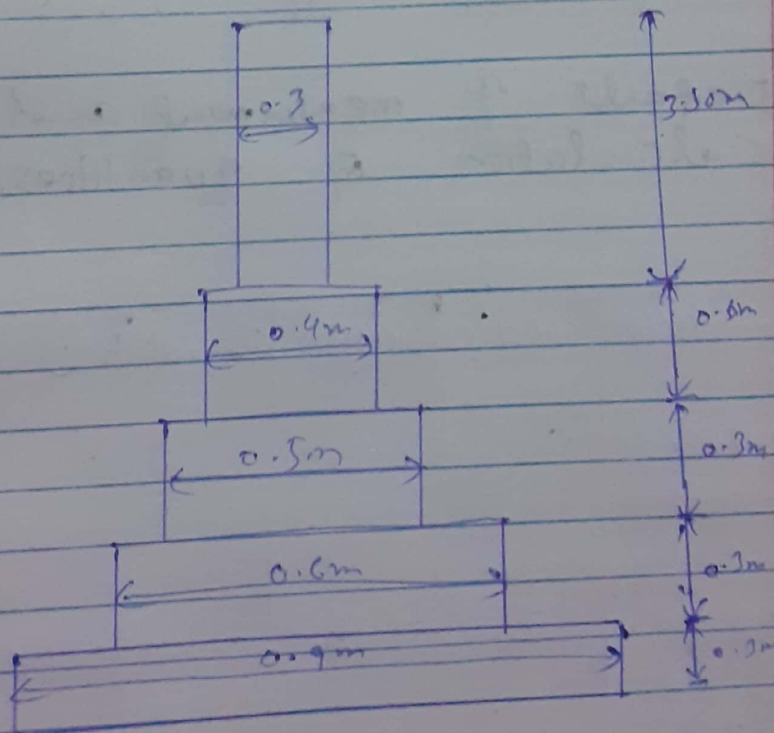 0.3
3.50m
0.4m
0.6m
0.5m
0.3m
0.6m
0.3m
0.9m
0.3m